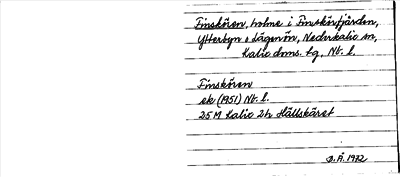 Finskören, holme i Finskärfjärden,
Ytterbyn o Lägenön, Nederkalix sn,
Kalix doms. tg, Nb. l.
Finskören
ek (1951) Nb. l.
25 M Kalix 2h Hällskäret
D.Å. 1972